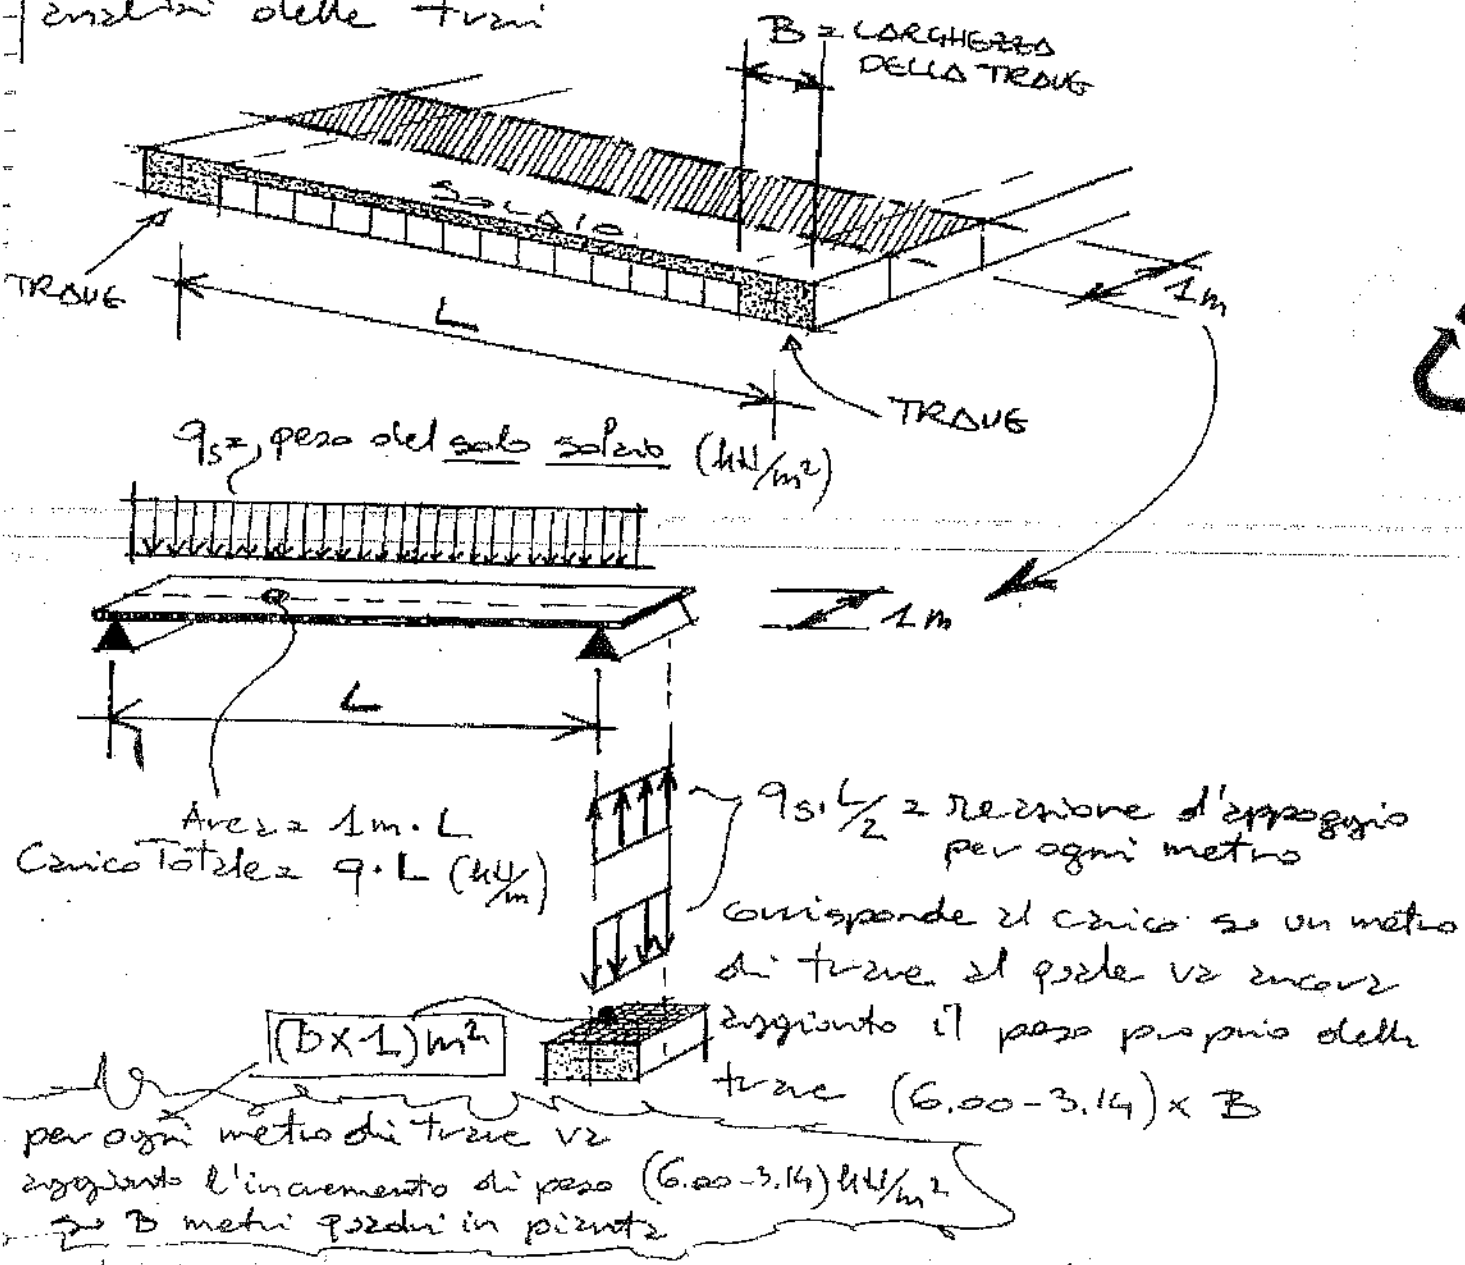 analisi delle travi
B = LARGHEZZA
DELLA TRAVE
SOLAIO
TRAVE
L
1m
TRAVE
qs = peso del solo solaio (kN/m²)
1m
L
Area = 1m · L
Carico Totale = q · L (kN/m)
qs · L/2 = reazione d'appoggio
per ogni metro
corrisponde al carico su un metro
di trave al quale va ancora
aggiunto il peso proprio della
trave (6.00-3.14) x B
(B x 1) m²
per ogni metro di trave va
aggiunto l'incremento di peso (6.00-3.14) kN/m²
su B metri quadri in pianta